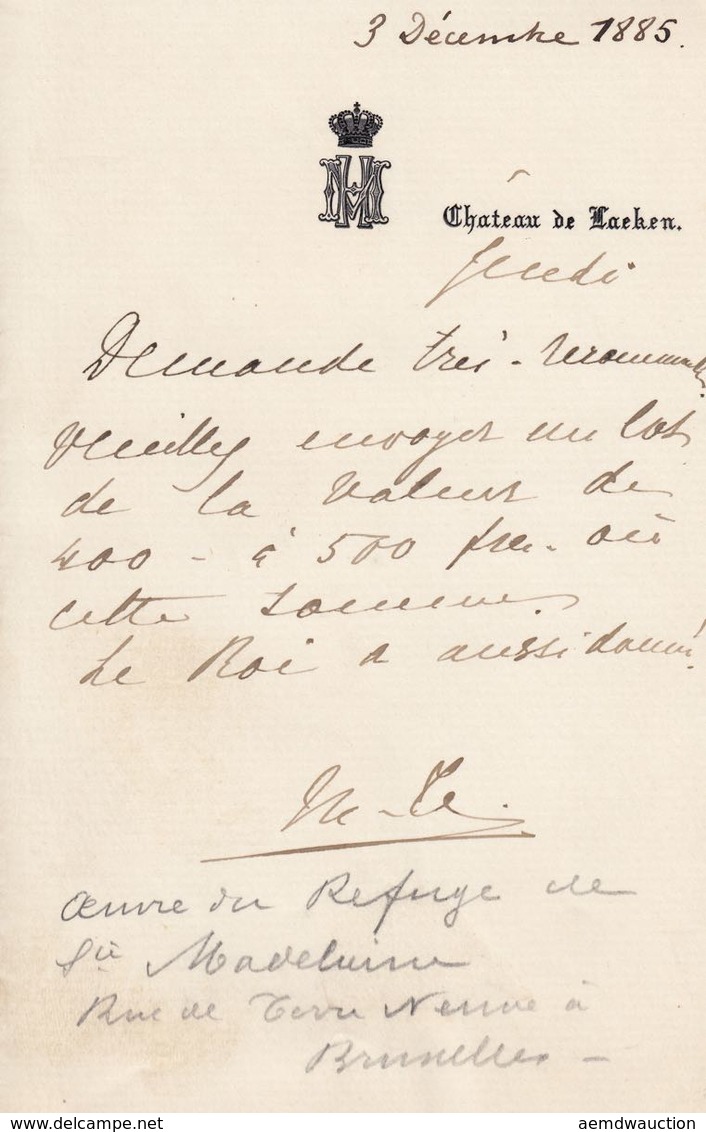 3 Décembre 1885.
MH
Chateau de Laeken.
Jeudi
Demande très-
Veuillez envoyer un lot
de la valeur de
400 - à 500 frs. où
cette somme.
Le Roi a aussi donné.
Œuvre du Refuge de
Ste Madeleine
Rue de Terre Neuve à
Bruxelles -
delcampe.net
aemdwauction